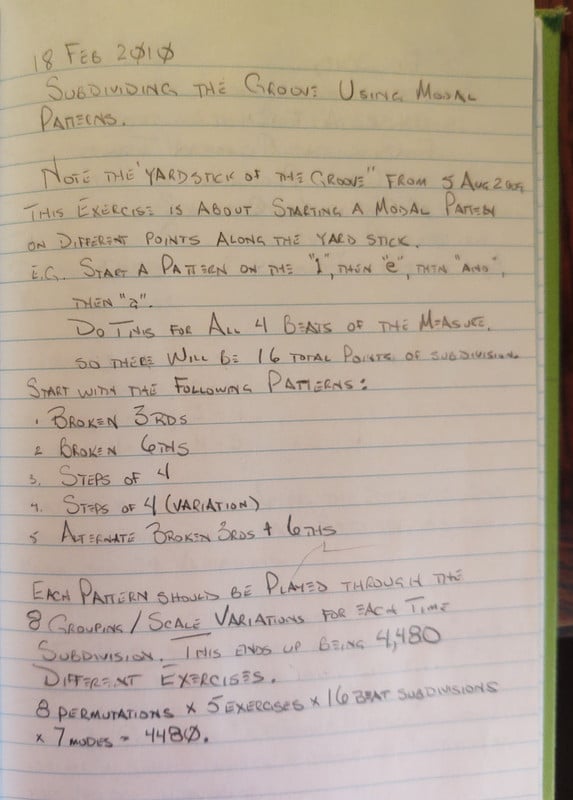 18 FEB 2010
SUBDIVIDING THE GROOVE USING MODAL
PATTERNS.
NOTE THE "YARDSTICK OF THE GROOVE" FROM 5 AUG 2009
THIS EXERCISE IS ABOUT STARTING A MODAL PATTERN
ON DIFFERENT POINTS ALONG THE YARD STICK.
E.G. START A PATTERN ON THE "1", THEN "e", THEN "AND",
THEN "a".
DO THIS FOR ALL 4 BEATS OF THE MEASURE,
SO THERE WILL BE 16 TOTAL POINTS OF SUBDIVISION.
START WITH THE FOLLOWING PATTERNS:
1. BROKEN 3RDS
2. BROKEN 6THS
3. STEPS OF 4
4. STEPS OF 4 (VARIATION)
5 ALTERNATE BROKEN 3RDS + 6THS
EACH PATTERN SHOULD BE PLAYED THROUGH THE
8 GROUPING/SCALE VARIATIONS FOR EACH TIME
SUBDIVISION. THIS ENDS UP BEING 4,480
DIFFERENT EXERCISES.
8 PERMUTATIONS x 5 EXERCISES x 16 BEAT SUBDIVISIONS
x 7 MODES = 4480.